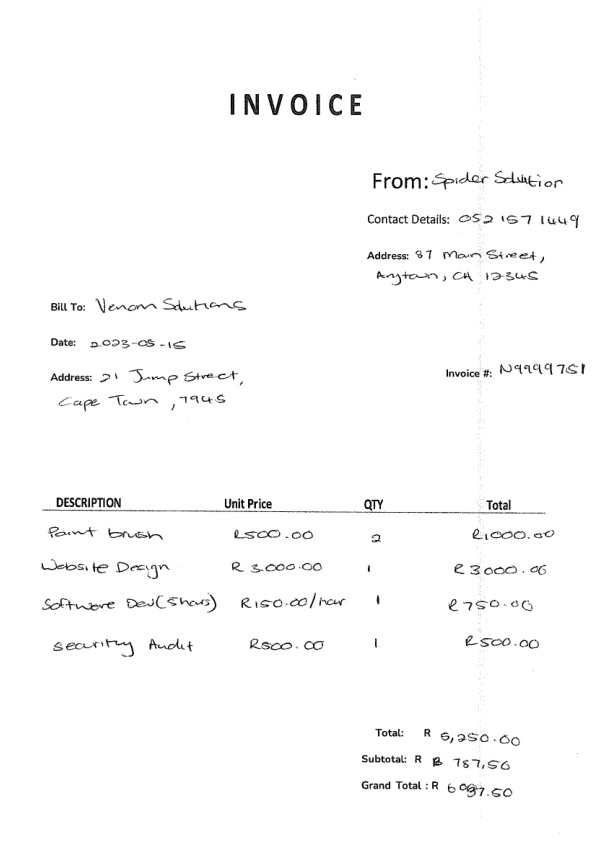 INVOICE
From: Spider Solution
Contact Details: 052 157 1449
Address: 87 Main Street,
Anytown, CA 12345
Bill To: Venom Solutions
Date: 2023-05-15
Address: 21 Jump Street,
Cape Town, 7945
Invoice #: N9999751
DESCRIPTION Unit Price QTY Total
Paint brush R500.00 2 R1000.00
Website Design R 3000.00 1 R 3000.00
Software Dev(5hours) R150.00/hour 1 R750.00
Security Audit R500.00 1 R500.00
Total: R 5,250.00
Subtotal: R 787,50
Grand Total : R 6037.50